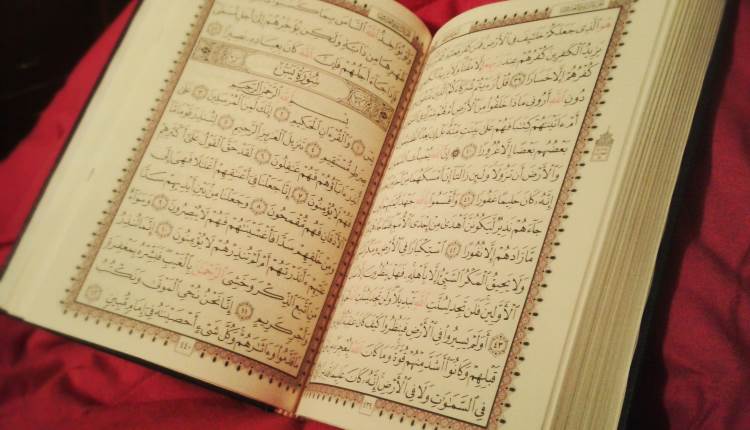 هُوَ ٱلَّذِى جَعَلَكُمْ خَلَٰٓئِفَ فِى ٱلْأَرْضِ فَمَن كَفَرَ فَعَلَيْهِ كُفْرُهُۥ وَلَا
يَزِيدُ ٱلْكَٰفِرِينَ كُفْرُهُمْ عِندَ رَبِّهِمْ إِلَّا مَقْتًا وَلَا
كُفْرُهُمْ إِلَّا خَسَارًا ٣٩ قُلْ أَرَءَيْتُمْ
دُونِ ٱللَّهِ أَرُونِى مَاذَا خَلَقُوا۟ مِنَ ٱلْأَرْضِ أَمْ لَهُمْ
أَمْ ءَاتَيْنَٰهُمْ كِتَٰبًا فَهُمْ عَلَىٰ بَيِّنَتٍ مِّنْهُ بَلْ إِن
بَعْضُهُم بَعْضًا إِلَّا غُرُورًا ٤٠ إِنَّ ٱللَّهَ يُمْسِكُ
وَٱلْأَرْضَ أَن تَزُولَا وَلَئِن زَالَتَآ إِنْ أَمْسَكَهُمَا مِنْ
إِنَّهُۥ كَانَ حَلِيمًا غَفُورًا ٤١ وَأَقْسَمُوا۟ بِٱللَّهِ
جَآءَهُمْ نَذِيرٌ لَّيَكُونُنَّ أَهْدَىٰ مِنْ إِحْدَى ٱلْأُمَمِ فَلَمَّا
مَّا زَادَهُمْ إِلَّا نُفُورًا ٤٢ ٱسْتِكْبَارًا فِى ٱلْأَرْضِ
وَلَا يَحِيقُ ٱلْمَكْرُ ٱلسَّيِّئُ إِلَّا بِأَهْلِهِۦ فَهَلْ يَنظُرُونَ
ٱلْأَوَّلِينَ فَلَن تَجِدَ لِسُنَّتِ ٱللَّهِ تَبْدِيلًا وَلَن تَجِدَ لِسُنَّتِ
٤٣ أَوَلَمْ يَسِيرُوا۟ فِى ٱلْأَرْضِ فَيَنظُرُوا۟ كَيْفَ كَانَ
قَبْلِهِمْ وَكَانُوٓا۟ أَشَدَّ مِنْهُمْ قُوَّةً وَمَا كَانَ ٱللَّهُ لِيُعْجِزَهُۥ
فِى ٱلسَّمَٰوَٰتِ وَلَا فِى ٱلْأَرْضِ إِنَّهُۥ كَانَ عَلِيمًا
وَلَوْ يُؤَاخِذُ ٱللَّهُ ٱلنَّاسَ بِمَا كَسَبُوا۟
ظَهْرِهَا مِن دَآبَّةٍ وَلَٰكِن يُؤَخِّرُهُمْ إِلَىٰٓ أَجَلٍ مُّسَمًّى
فَإِذَا جَآءَ أَجَلُهُمْ فَإِنَّ ٱللَّهَ كَانَ بِعِبَادِهِۦ بَصِيرًا
سُورَةُ يسٓ
بِسْمِ ٱللَّهِ ٱلرَّحْمَٰنِ ٱلرَّحِيمِ
يسٓ ١ وَٱلْقُرْءَانِ ٱلْحَكِيمِ ٢ إِنَّكَ لَمِنَ ٱلْمُرْسَلِينَ ٣ عَلَىٰ
صِرَٰطٍ مُّسْتَقِيمٍ ٤ تَنزِيلَ ٱلْعَزِيزِ ٱلرَّحِيمِ ٥ لِتُنذِرَ قَوْمًا مَّآ
أُنذِرَ ءَابَآؤُهُمْ فَهُمْ غَٰفِلُونَ ٦ لَقَدْ حَقَّ ٱلْقَوْلُ عَلَىٰٓ أَكْثَرِهِمْ
فَهُمْ لَا يُؤْمِنُونَ ٧ إِنَّا جَعَلْنَا فِىٓ أَعْنَٰقِهِمْ أَغْلَٰلًا فَهِىَ إِلَى
ٱلْأَذْقَانِ فَهُم مُّقْمَحُونَ ٨ وَجَعَلْنَا مِنۢ بَيْنِ أَيْدِيهِمْ سَدًّا
وَمِنْ خَلْفِهِمْ سَدًّا فَأَغْشَيْنَٰهُمْ فَهُمْ لَا يُبْصِرُونَ ٩ وَسَوَآءٌ
عَلَيْهِمْ ءَأَنذَرْتَهُمْ أَمْ لَمْ تُنذِرْهُمْ لَا يُؤْمِنُونَ ١٠ إِنَّمَا تُنذِرُ
مَنِ ٱتَّبَعَ ٱلذِّكْرَ وَخَشِىَ ٱلرَّحْمَٰنَ بِٱلْغَيْبِ فَبَشِّرْهُ بِمَغْفِرَةٍ
وَأَجْرٍ كَرِيمٍ ١١ إِنَّا نَحْنُ نُحْىِ ٱلْمَوْتَىٰ وَنَكْتُبُ
مَا قَدَّمُوا۟ وَءَاثَٰرَهُمْ وَكُلَّ شَىْءٍ أَحْصَيْنَٰهُ فِىٓ إِمَامٍ مُّبِينٍ
٤٤٠